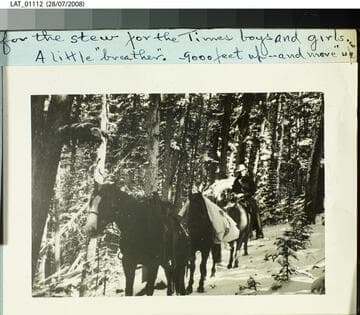 LAT_01112 (28/07/2008)
for the stew for the Times boys and girls.
A little "breather". 9000 feet up -- and more "up